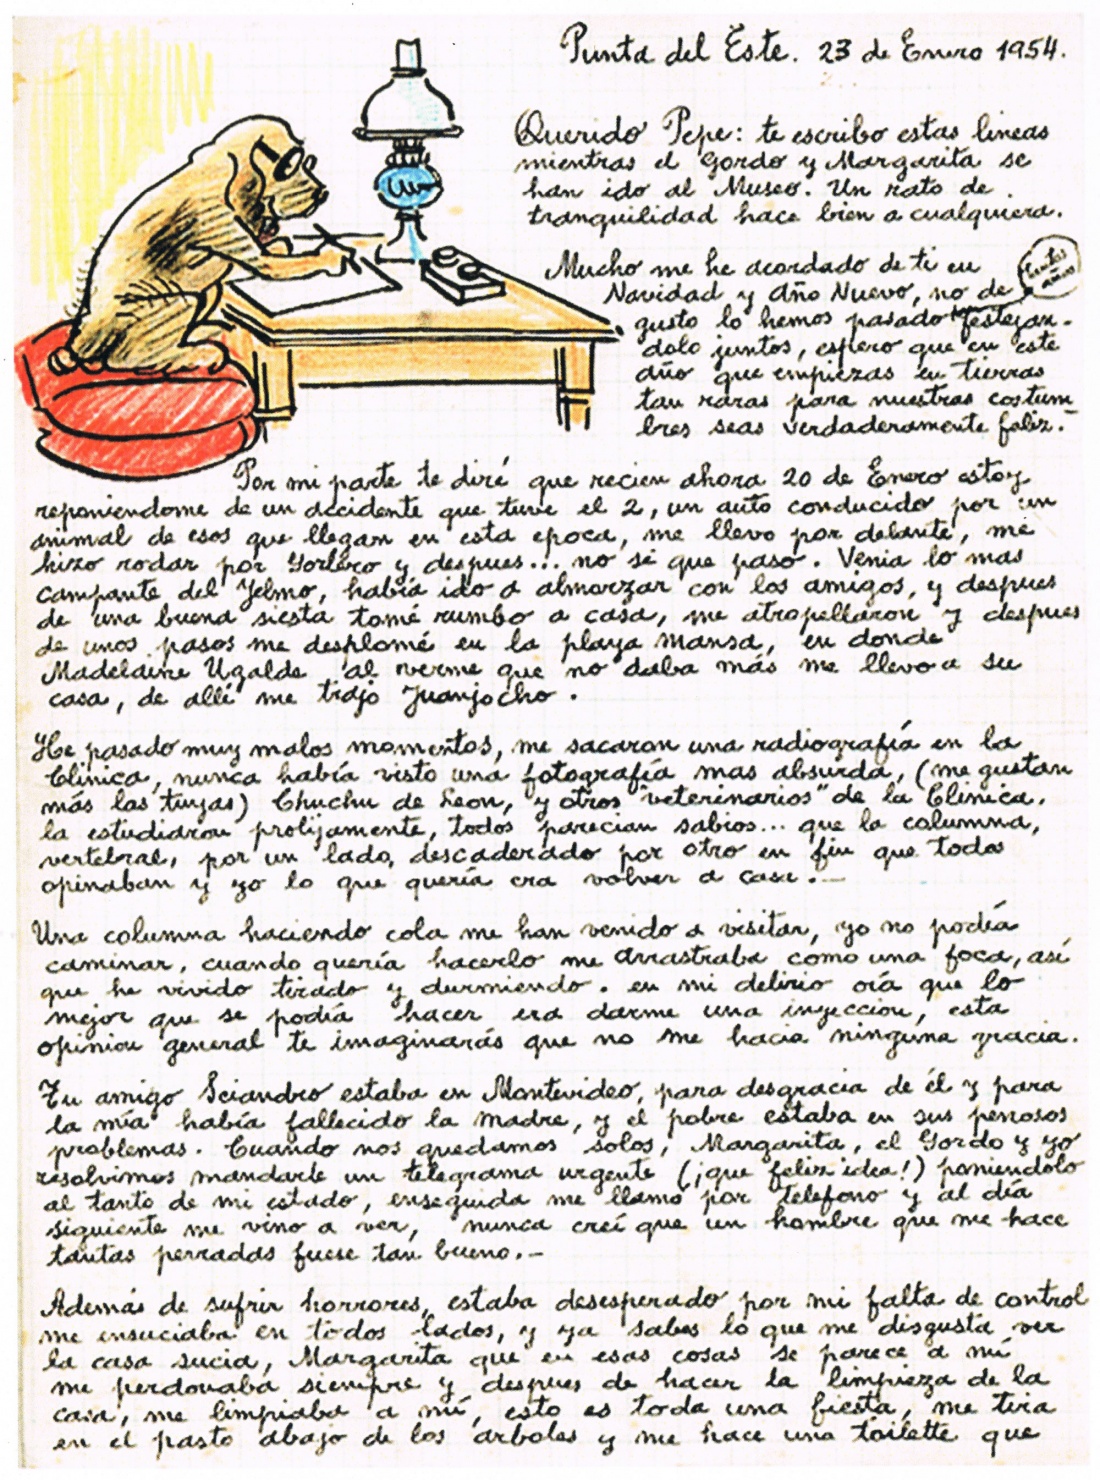 Punta del Este. 23 de Enero 1954.
Querido Pepe: te escribo estas lineas
mientras el Gordo y Margarita se
han ido al Museo. Un rato de
tranquilidad hace bien a cualquiera.
Mucho me he acordado de ti en
Navidad y Año Nuevo, no de
tantos años
gusto lo hemos pasado festejan-
dolo juntos, espero que en este
año que empiezas en tierras
tan raras para nuestras costum-
bres seas verdaderamente feliz.-
Por mi parte te diré que recien ahora 20 de Enero estoy
reponiendome de un accidente que tuve el 2, un auto conducido por un
animal de esos que llegan en esta epoca, me llevo por delante, me
hizo rodar por Gorlero y despues... no sé que paso. Venia lo mas
campante del Yelmo, había ido a almorzar con los amigos, y despues
de una buena siesta tomé rumbo a casa, me atropellaron y despues
de unos pasos me desplomé en la playa mansa, en donde
Madelaine Ugalde al verme que no daba más me llevo a su
casa, de allí me trajo Juanjocho.
He pasado muy malos momentos, me sacaron una radiografía en la
Clinica, nunca había visto una fotografía mas absurda, (me gustan
más las tuyas) Chuchu de Leon, y otros "veterinarios" de la Clinica.
la estudiaron prolijamente, todos parecian sabios... que la columna,
vertebral, por un lado, descaderado por otro en fin que todos
opinaban y yo lo que quería era volver a casa.-
Una columna haciendo cola me han venido a visitar, yo no podía
caminar, cuando quería hacerlo me arrastraba como una foca, así
que he vivido tirado y durmiendo. en mi delirio oía que lo
mejor que se podía hacer era darme una inyeccion, esta
opinion general te imaginarás que no me hacia ninguna gracia.
Tu amigo Sciandro estaba en Montevideo, para desgracia de él y para
la mía había fallecido la madre, y el pobre estaba en sus penosos
problemas. Cuando nos quedamos solos, Margarita, el Gordo y yo
resolvimos mandarle un telegrama urgente (¡que feliz idea!) poniendolo
al tanto de mi estado, enseguida me llamo por telefono y al día
siguiente me vino a ver, nunca creí que un hombre que me hace
tantas perradas fuese tan bueno.-
Además de sufrir horrores, estaba desesperado por mi falta de control
me ensuciaba en todos lados, y ya sabes lo que me disgusta ver
la casa sucia, Margarita que en esas cosas se parece a mí
me perdonaba siempre y despues de hacer la limpieza de la
casa, me limpiaba a mí, esto es toda una fiesta, me tira
en el pasto abajo de los arboles y me hace una toilette que